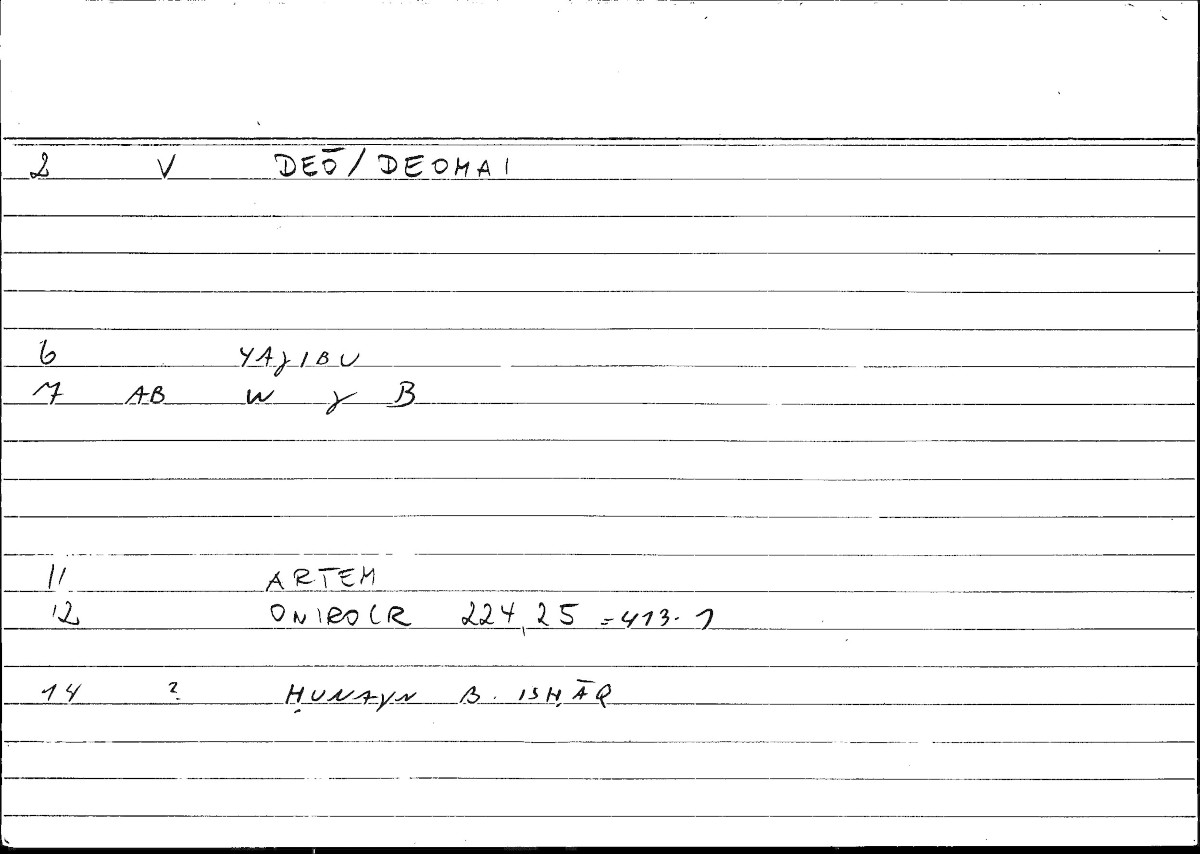 2 V DEŌ/DEOMAI
6 YAJIBU
7 AB W J B
11 ARTEM
12 ONIROCR 224,25 = 413.1
14 ? ḤUNAYN B. ISḤĀQ